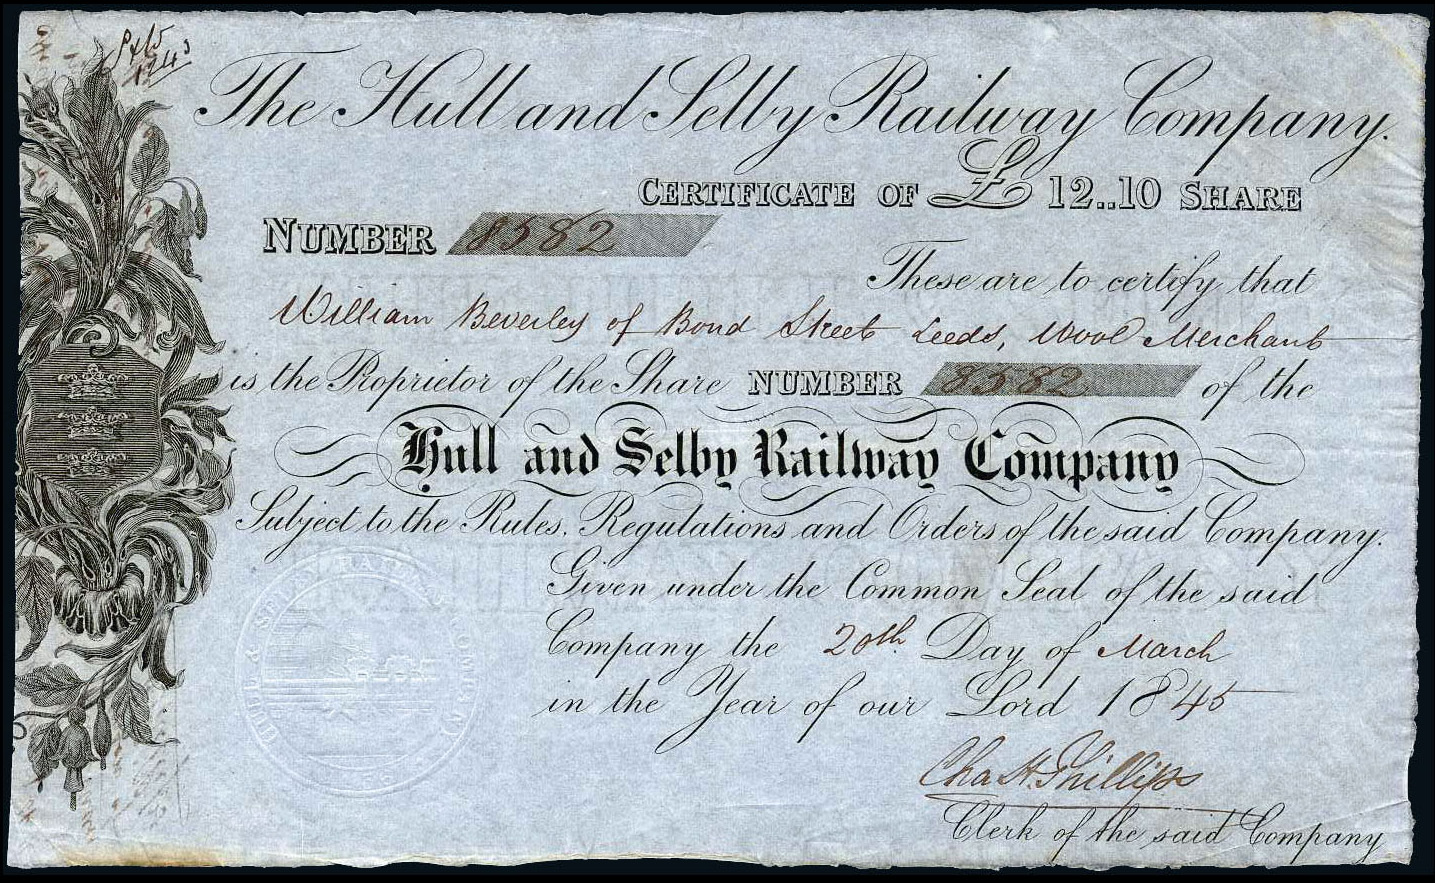 The Hull and Selby Railway Company.
CERTIFICATE OF £ 12..10 SHARE
NUMBER 8582
These are to certify that
William Beverley of Bond Street Leeds, Wool Merchant
is the Proprietor of the Share NUMBER 8582 of the
Hull and Selby Railway Company
Subject to the Rules, Regulations and Orders of the said Company.
Given under the Common Seal of the said
Company the 20th Day of March
in the Year of our Lord 1845
Chas H. Phillips
Clerk of the said Company